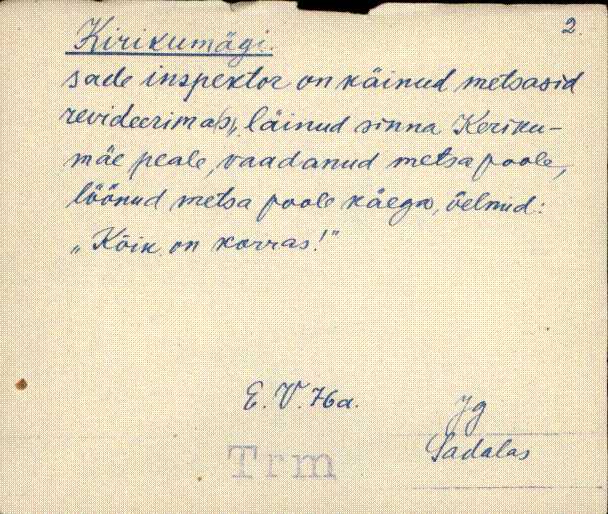 2.
Kirikumägi.
sade inspektor on käinud metsasid
revideerima(s), läinud sinna Keriku-
mäe peale, vaadanud metsa poole,
löönud metsa poole käega, õelnud:
„Kõik on korras!"
E. V. 76a.
Jg
Sadalas
Trm